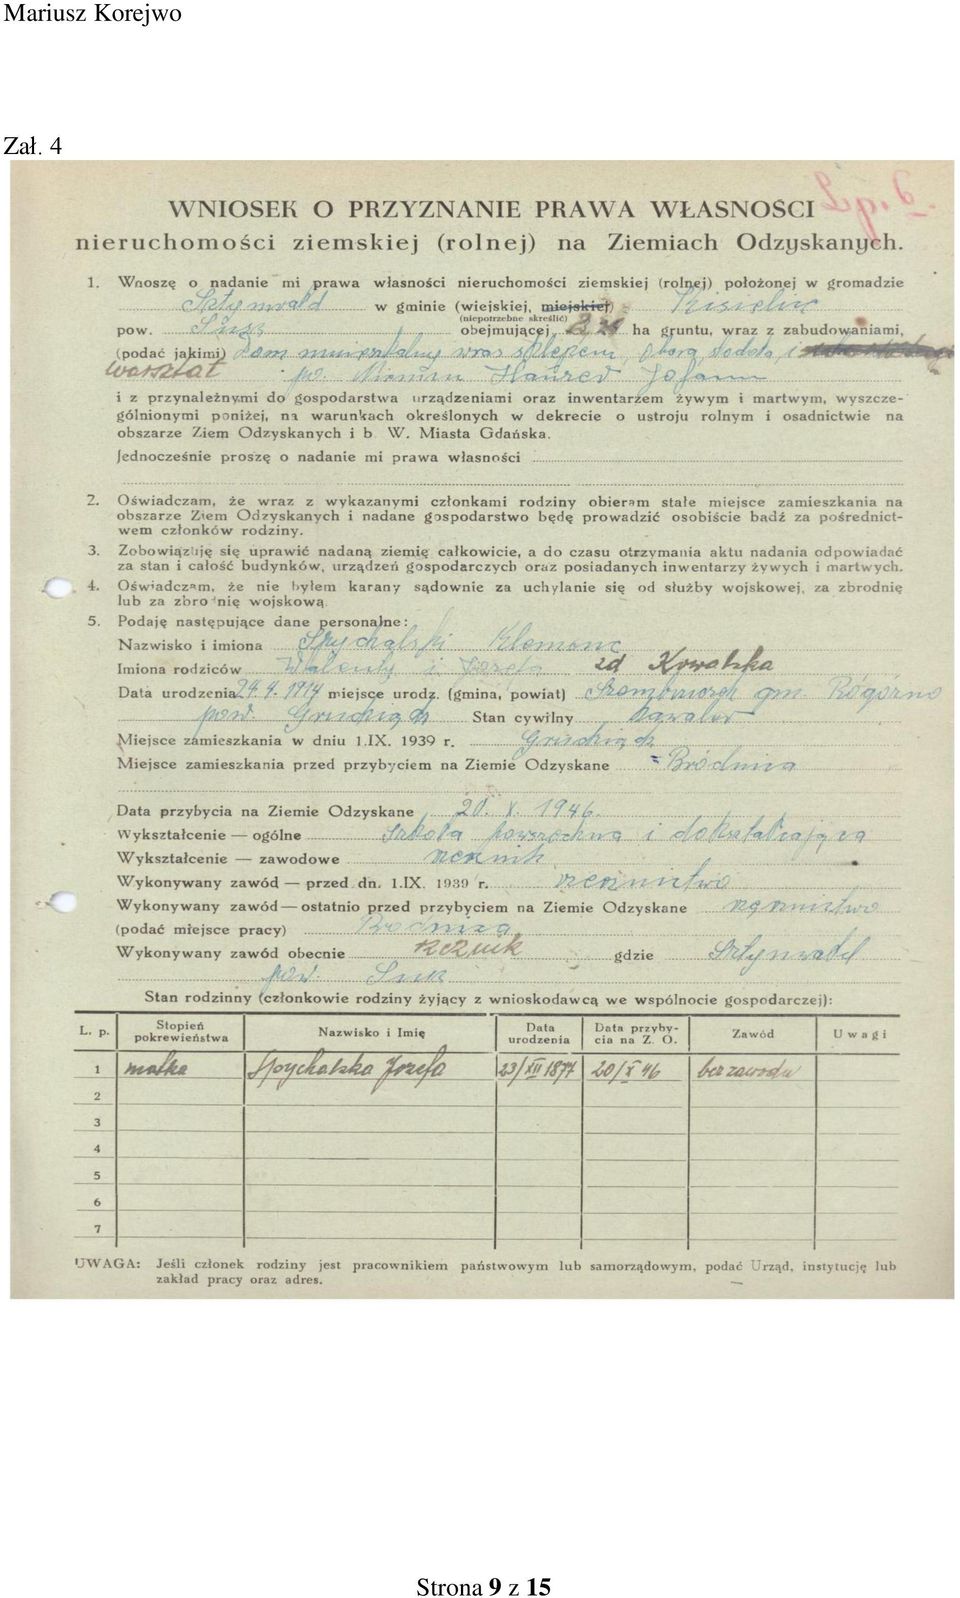 Mariusz Korejwo
Zał. 4
WNIOSEK O PRZYZNANIE PRAWA WŁASNOŚCI
nieruchomości ziemskiej (rolnej) na Ziemiach Odzyskanych.
1. Wnoszę o nadanie mi prawa własności nieruchomości ziemskiej (rolnej) położonej w gromadzie
w gminie (wiejskiej, miejskiej) Kisielice
(niepotrzebne skreślić)
pow. Susz obejmującej ha gruntu, wraz z zabudowaniami,
(podać jakimi) dom mieszkalny wraz sklepem, Obora, stodoła i
warsztat po Johann
i z przynależnymi do gospodarstwa urządzeniami oraz inwentarzem żywym i martwym, wyszcze-
gólnionymi poniżej, na warunkach określonych w dekrecie o ustroju rolnym i osadnictwie na
obszarze Ziem Odzyskanych i b. W. Miasta Gdańska.
Jednocześnie proszę o nadanie mi prawa własności
2. Oświadczam, że wraz z wykazanymi członkami rodziny obieram stałe miejsce zamieszkania na
obszarze Ziem Odzyskanych i nadane gospodarstwo będę prowadzić osobiście badź za pośrednict-
wem członków rodziny.
3. Zobowiązuję się uprawić nadaną ziemię całkowicie, a do czasu otrzymania aktu nadania odpowiadać
za stan i całość budynków, urządzeń gospodarczych oraz posiadanych inwentarzy żywych i martwych.
4. Oświadczam, że nie byłem karany sądownie za uchylanie się od służby wojskowej, za zbrodnię
lub za zbrodnię wojskową.
5. Podaję następujące dane personalne:
Nazwisko i imiona Spychalski Klemenc
Imiona rodziców Walenty i Józefa zd Kowalska
Data urodzenia 24.4.1914 miejsce urodz. (gmina, powiat) gm. Rógóźno
pow. Grudziądz Stan cywilny kawaler
Miejsce zamieszkania w dniu 1.IX. 1939 r. Grudziądz
Miejsce zamieszkania przed przybyciem na Ziemie Odzyskane Brodnica
Data przybycia na Ziemie Odzyskane 20. X. 1946.
Wykształcenie — ogólne Szkoła powszechna i dokształcająca
Wykształcenie — zawodowe rzeźnik
Wykonywany zawód — przed dn. 1.IX. 1939 r. rzeźnictwo
Wykonywany zawód — ostatnio przed przybyciem na Ziemie Odzyskane rzeźnictwo
(podać miejsce pracy) Brodnica
Wykonywany zawód obecnie rzeźnik gdzie
pow. Susz
Stan rodzinny (członkowie rodziny żyjący z wnioskodawcą we wspólnocie gospodarczej):
L. p. Stopień pokrewieństwa Nazwisko i Imię Data urodzenia Data przyby-cia na Z. O. Zawód Uwagi
1 matka Spychalska Józefa 23/XII 1877 20/X 46 bez zawodu
2
3
4
5
6
7
UWAGA: Jeśli członek rodziny jest pracownikiem państwowym lub samorządowym, podać Urząd, instytucję lub
zakład pracy oraz adres.
Strona 9 z 15